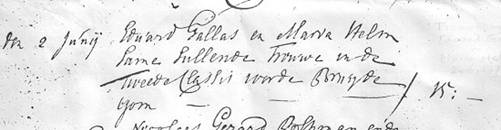 den 2 Junij Eduard Gallas en Maria Helm
same sullende Trouwe in de
Tweede Classis worde Bruyde
gom — — — 15: —
Nicolaes Gerard